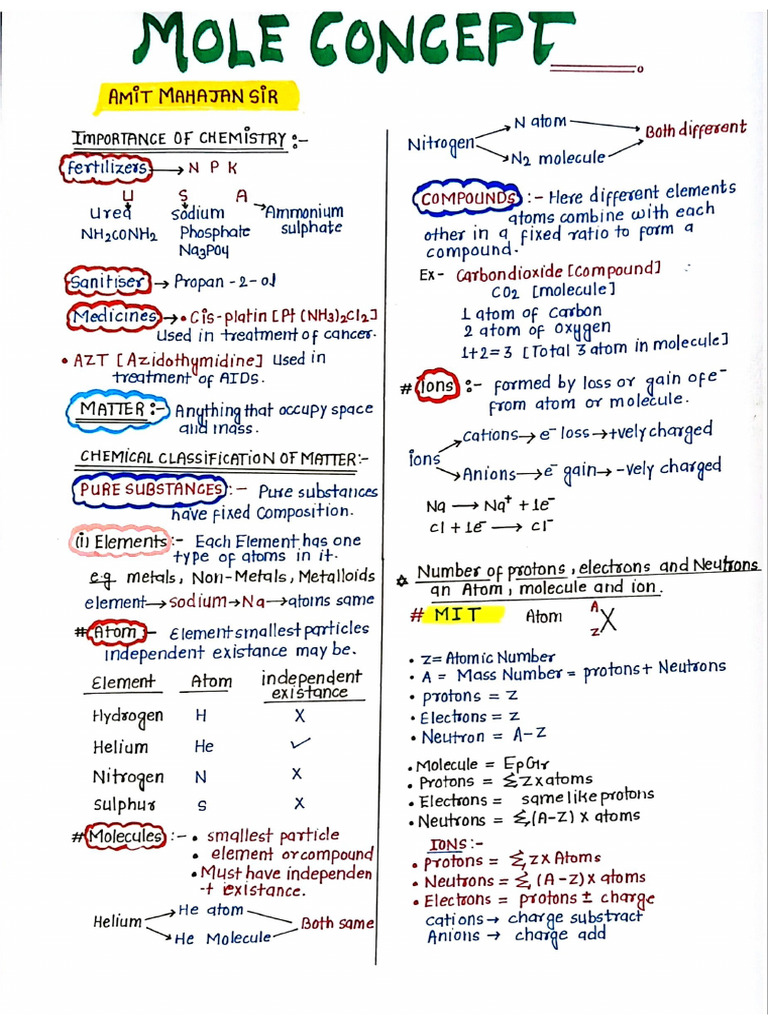 MOLE CONCEPT
AMIT MAHAJAN SIR
IMPORTANCE OF CHEMISTRY :-
Fertilizers → N P K
U S A
Urea sodium Ammonium
NH2CONH2 Phosphate sulphate
Na3PO4
Sanitiser → Propan-2-ol
Medicines → • Cis-platin [Pt (NH3)2Cl2]
Used in treatment of cancer.
• AZT [Azidothymidine] used in
treatment of AIDS.
MATTER :- Anything that occupy space
and mass.
CHEMICAL CLASSIFICATION OF MATTER:-
PURE SUBSTANCES :- Pure substances
have fixed Composition.
(i) Elements :- Each Element has one
type of atoms in it.
e.g metals, Non-Metals, Metalloids
element → sodium → Na → atoms same
# Atom :- Element smallest particles
independent existance may be.
Element Atom independent
existance
Hydrogen H X
Helium He ✓
Nitrogen N X
Sulphur S X
# Molecules :- • smallest particle
• element or compound
• Must have independen
-t existance.
Helium → He atom
→ He Molecule
Both same
Nitrogen → N atom
→ N2 molecule
Both different
COMPOUNDS :- Here different elements
atoms combine with each
other in a fixed ratio to form a
compound.
Ex- Carbondioxide [Compound]
CO2 [molecule]
1 atom of Carbon
2 atom of Oxygen
1+2=3 [Total 3 atom in molecule]
# Ions :- formed by loss or gain of e⁻
from atom or molecule.
ions → Cations → e⁻ loss → +vely charged
→ Anions → e⁻ gain → -vely charged
Na → Na⁺ + 1e⁻
Cl + 1e⁻ → Cl⁻
☆ Number of protons, electrons and Neutrons
an Atom, molecule and ion.
# MIT Atom A Z X
• Z = Atomic Number
• A = Mass Number = protons + Neutrons
• protons = Z
• Electrons = Z
• Neutron = A-Z
• Molecule = EpGr
• Protons = Σ Z x atoms
• Electrons = same like protons
• Neutrons = Σ (A-Z) X atoms
IONS :-
• Protons = Σ Z X Atoms
• Neutrons = Σ (A-Z) X atoms
• Electrons = protons ± charge
cations → charge substract
Anions → charge add